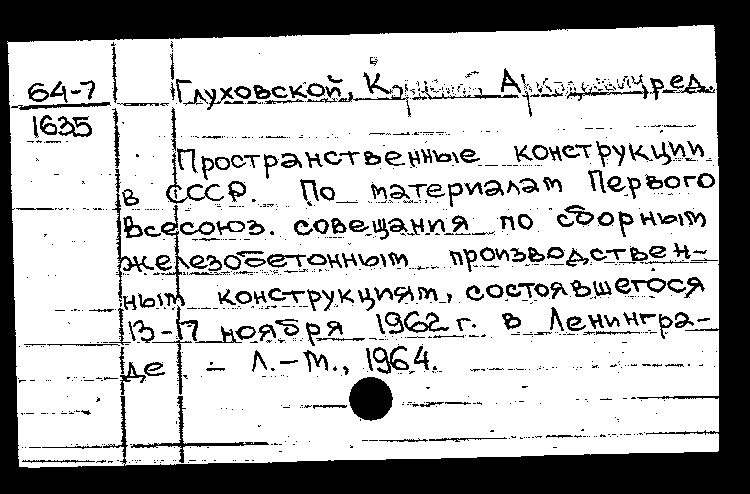 64-7
1635
Глуховской, К А ред.
Пространственные конструкции
в СССР. По материалам Первого
Всесоюз. совещания по сборным
железобетонным производствен-
ным конструкциям, состоявшегося
13-17 ноября 1962 г. в Ленингра-
де. - Л.-М., 1964.